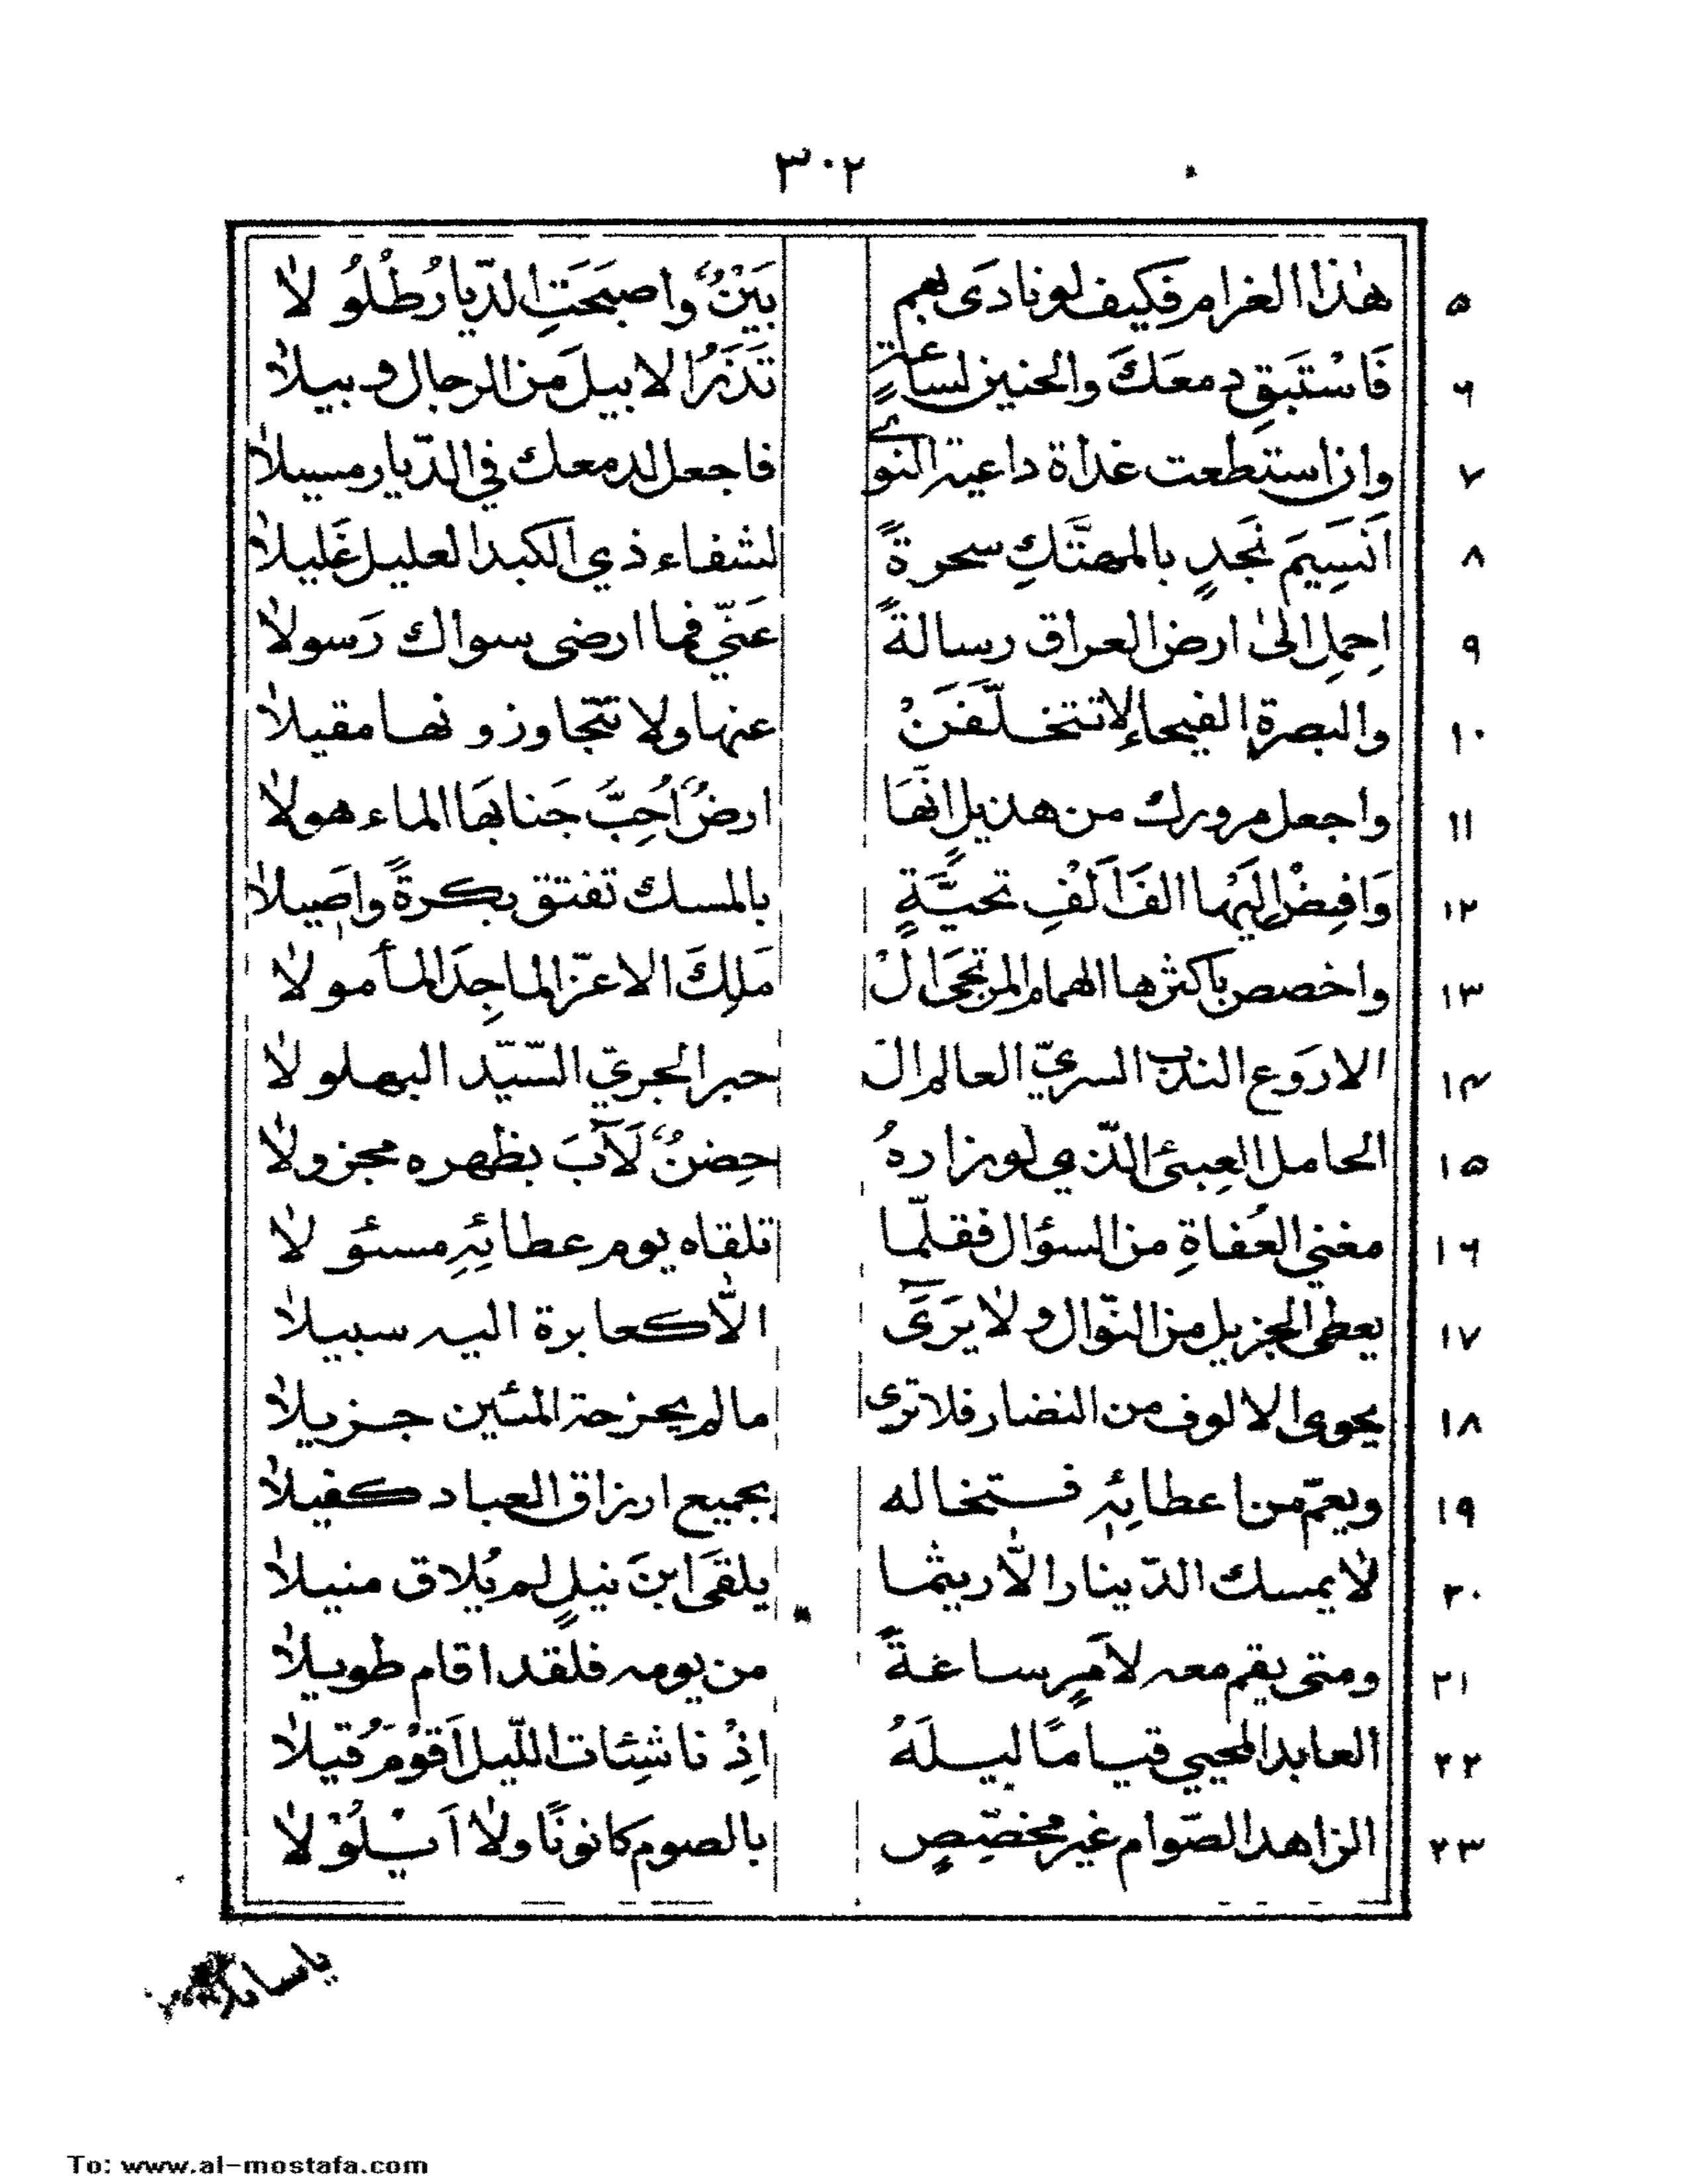 ٣٠٢
٥ هٰذا الغرام فكيف لو نادى بهم بَيْنٌ واصبَحَتِ الدّيارُ طُلُولاٰ
٦ فَاسْتَبقِ دمعَكَ والحنين لساعةٍ تَذَرُ الابيلَ من الرجال وبيلاٰ
٧ وان استطعت غداة داعية النوى فاجعل لدمعك في الدّيار مسيلاٰ
٨ اَنَسِيمَ نَجدٍ بالمصنَّكِ سحرةً لشفاء ذي الكبد العليل غَليلاٰ
٩ اِحمِل الىٰ ارض العراق رسالةً عَنّي فما ارضى سواك رَسولاٰ
١٠ والبصرةِ الفيحاءِ لا تتخلّفَنْ عنها ولا تتّجاوزونها مقيلاٰ
١١ واجعل مرورك من هذيلٍ انّهَا ارضٌ اُحِبُّ جَنابهَا الماءهولاٰ
١٢ وَافِضْ اِلَيْها الفَ اَلْفِ تحيَّةٍ بالمسك تفتق بكرةً واصِيلاٰ
١٣ واخصص باكثرها الهمام المرتجَى الْ مَلِكَ الاعزّ الماجِدَ المأمولاٰ
١٤ الاروَع الندب السريّ العالم الْ حبر الجريّ السّيّد البهلولاٰ
١٥ الحامل العِبئ الّذي لو زارهُ حِضنٌ لَآبَ بظهره مجزولاٰ
١٦ مغني العُفاةِ من السؤال فقلّما تلقاه يوم عطائِهِ مسئولاٰ
١٧ يعطي الجزيل من النّوال ولاٰ يَرَىَ الاّٰ كعابرة اليه سبيلاٰ
١٨ يحوى الالوف من النضار فلا ترى مالم يحزحة المئين جزيلاٰ
١٩ ويعمّ من اعطائِهٖ فتخاله بجميع ارزاق العباد كفيلاٰ
٣٠ لاٰ يمسك الدّينار الاّٰ ريثما يلقَى ابنَ نيلٍ لم يُلاق منيلاٰ
٢١ ومتى يقم معه لاَمرٍ ساعةً من يومه فلقد اقام طويلاٰ
٢٢ العابد المحيي قياماً ليلَهُ اِذْ ناشِئات اللّيل اَقوْمَ قيلاٰ
٢٣ الزاهد الصّوام غير مخصّصٍ بالصوم كانونًا ولاٰ اَيْلُوْلاٰ
To: www.al-mostafa.com